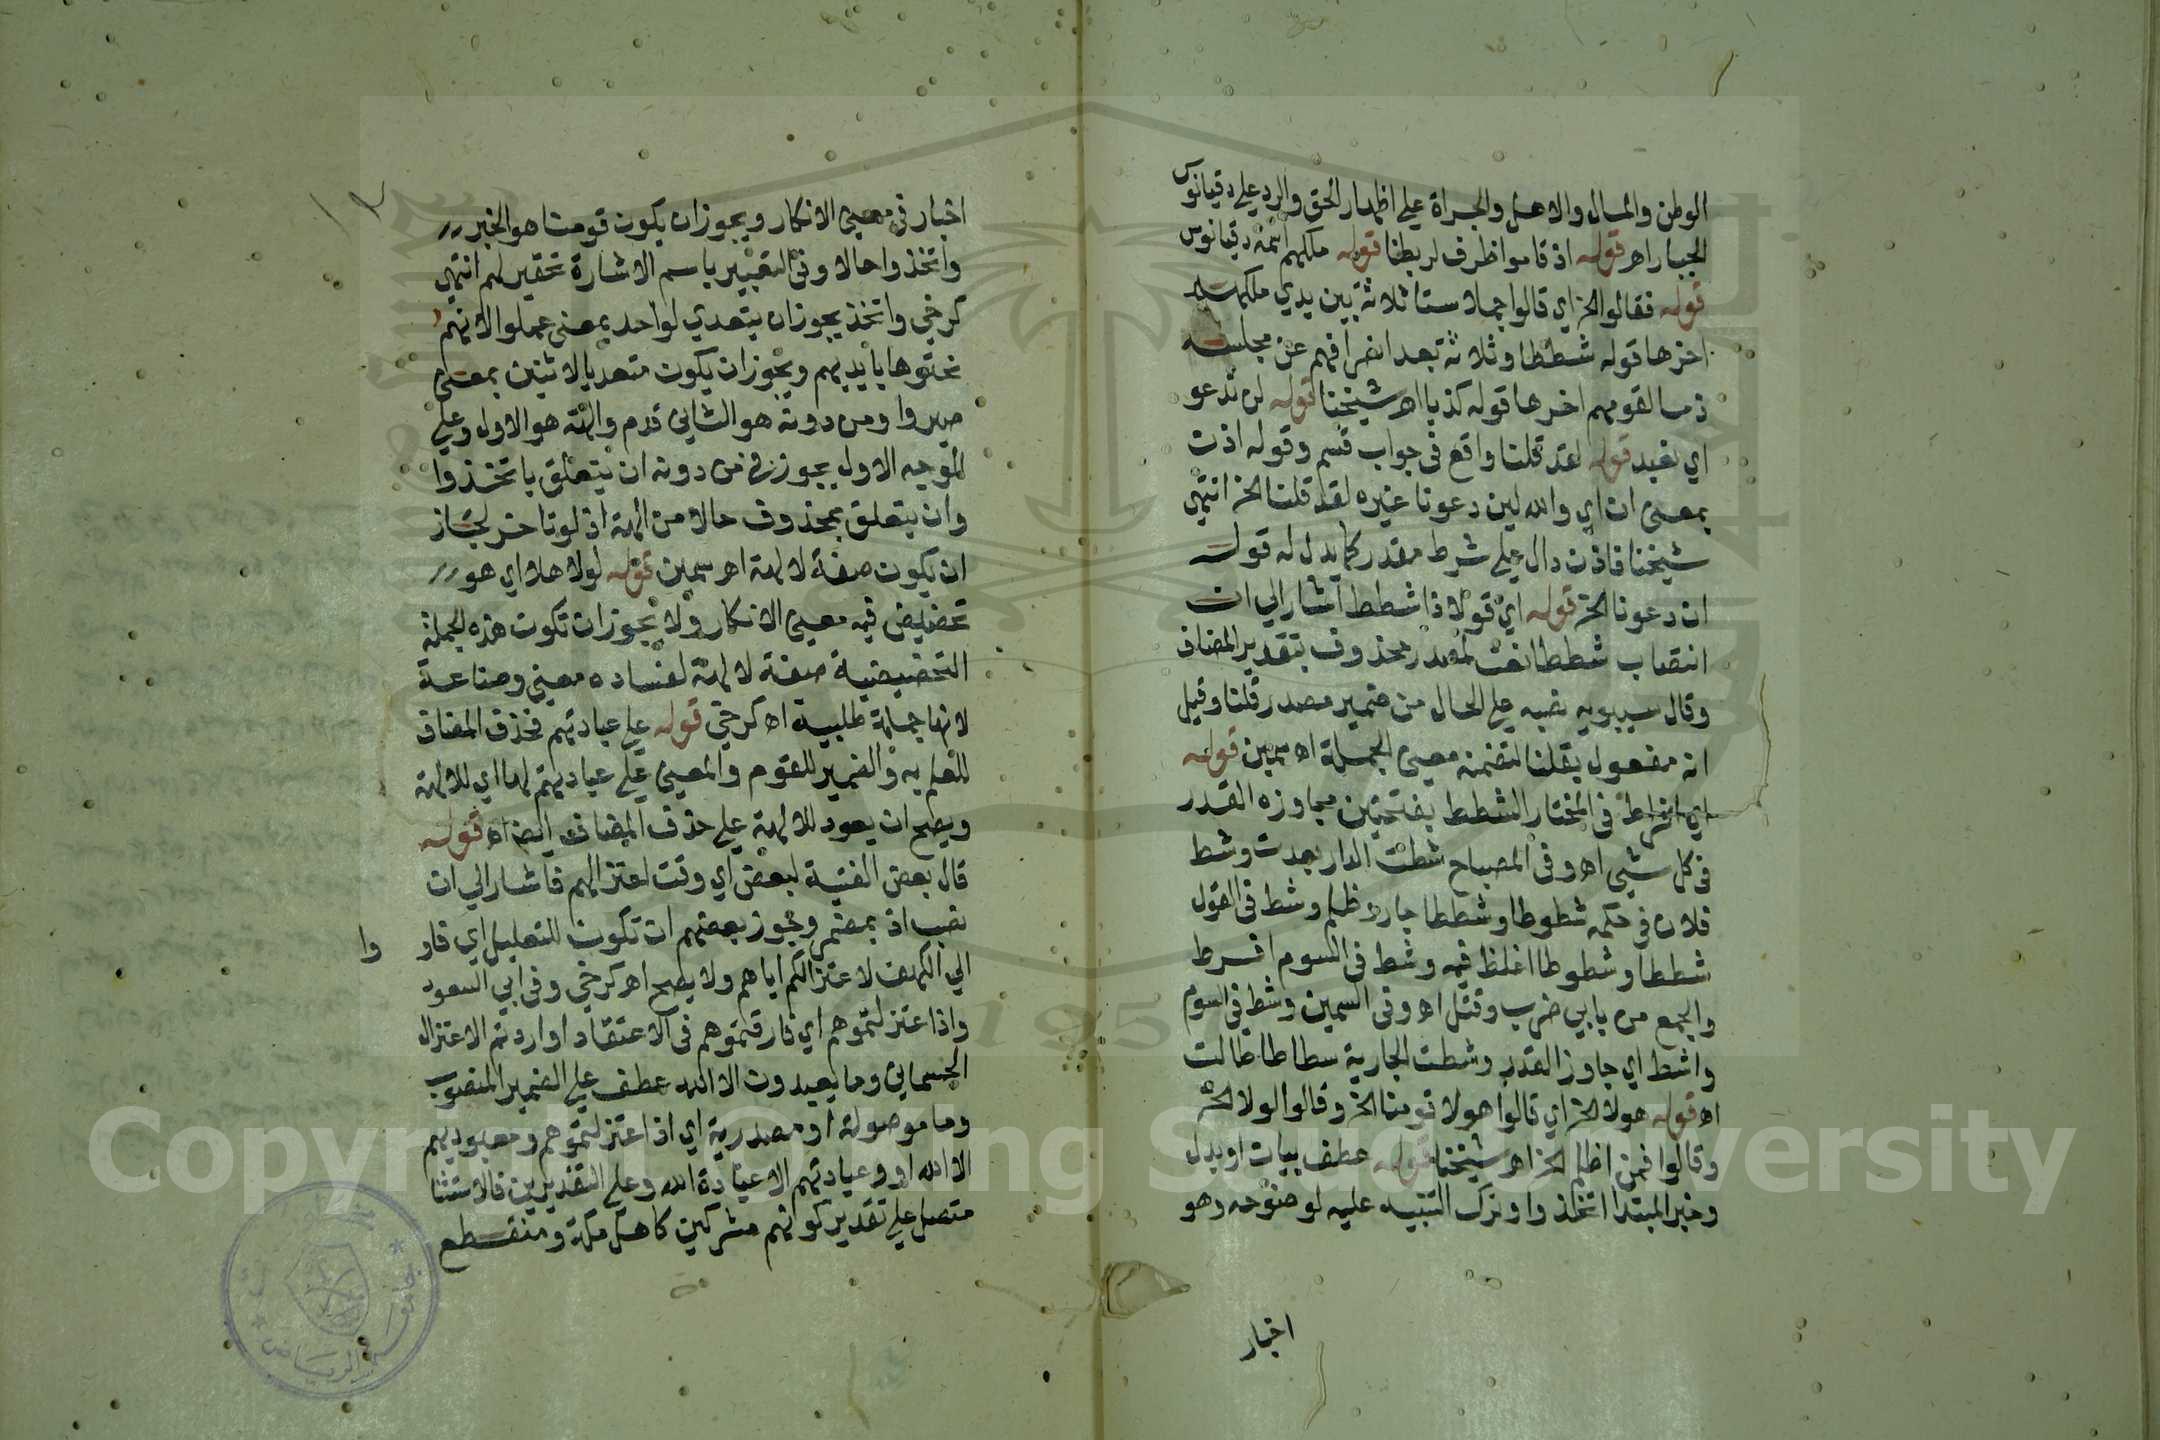 الوطن والمال والاهل والجراة علي اظهار الحق والرد علي دقيانوس
الجبار اهـ قوله اذ قاموا ظرف لربطنا قوله ملكهم اسمه دقيانوس
قوله فقالوا الخ اي قالوا جملا ستا ثلاثة بين يدي ملكهم
اخرها قوله شططا وثلاثة بعد انصرافهم عن مجلسه
ذما لقومهم اخرها قوله كذبا اهـ شيخنا قوله لن ندعو
اي نعبد قوله لقد قلنا واقع في جواب قسم وقوله اذن
بمعني ان اي والله لين دعونا غيره لقد قلنا الخ انتهي
شيخنا فاذن دال علي شرط مقدر كما يدل له قوله
ان دعونا الخ قوله اي قولا ذا شطط اشار الي ان
انتصاب شططا نعت لمصدر محذوف بتقدير المضاف
وقال سيبويه نصبه علي الحال من ضمير مصدر قلنا وقيل
انه مفعول بقلنا لتضمنه معني الجملة اهـ سمين قوله
اي افراط في المختار الشطط بفتحتين مجاوزه القدر
في كل شيي اهـ وفي المصباح شطت الدار بعدت وشط
فلان في حكمه شطوطا وشططا جار وظلم وشط في القول
شططا وشطوطا اغلظ فيه وشط في السوم افرط
والجمع من بابي ضرب وقتل اهـ وفي السمين وشط في السوم
واشط اي جاوز القدر وشطت الجارية سطاطا طالت
اهـ قوله هولا الخ اي قالوا هولا قومنا الخ وقالوا لولا الخ
وقالوا فمن اظلم الخ اهـ شيخنا قوله عطف بيان او بدل
وخبر المبتدا اتخذوا وترك التنبيه عليه لوضوحه وهو
اخبار
اخبار في معني الانكار ويجوز ان يكون قومنا هو الخبر
واتخذوا حالا وفي التعبير باسم الاشارة تحقير لهم انتهي
كرخي واتخذ يجوز ان يتعدي لواحد بمعني عملوا لانهم
نحتوها بايديهم ويجوز ان يكون متعديا لاثنين بمعني
صيروا ومن دونه هو الثاني قدم والهة هو الاول وعلي
الوجه الاول يجوز في من دونه ان يتعلق باتخذوا
وان يتعلق بمحذوف حالا من الهة اذ لو تاخر لجاز
ان يكون صفة لالهة اهـ سمين قوله لولا هلا اي هو
تحضيض فيه معني الانكار ولا يجوز ان تكون هذه الجملة
التحضيضية صفة لالهة لفساده معني وصناعة
لانها جملة طلبية اهـ كرخي قوله علي عبادتهم فحذف المضاف
للعلم به والضمير للقوم والمعني علي عبادتهم لها اي للالهة
ويصح ان يعود للالهة علي حذف المضاف ايضا اهـ قوله
قال بعض الفتية لبعض اي وقت اعتزالهم فاشار الي ان
نصب اذ بمضمر وجوز بعضهم ان تكون للتعليل اي فاو
وا
الي الكهف لاعتزالكم اياهم ولا يصح اهـ كرخي وفي ابي السعود
واذ اعتزلتموهم اي فارقتموهم في الاعتقاد او اردتم الاعتزال
الجسماني وما يعبدون الا الله عطف علي الضمير المنصوب
وما موصولة او مصدرية اي اذ اعتزلتموهم ومعبوديهم
الا الله او وعبادتهم الا عبادة الله وعلي التقديرين فالاستثنا
متصل علي تقدير كونهم مشركين كاهل مكة ومنقطع
Copyright © King Saud University
1957